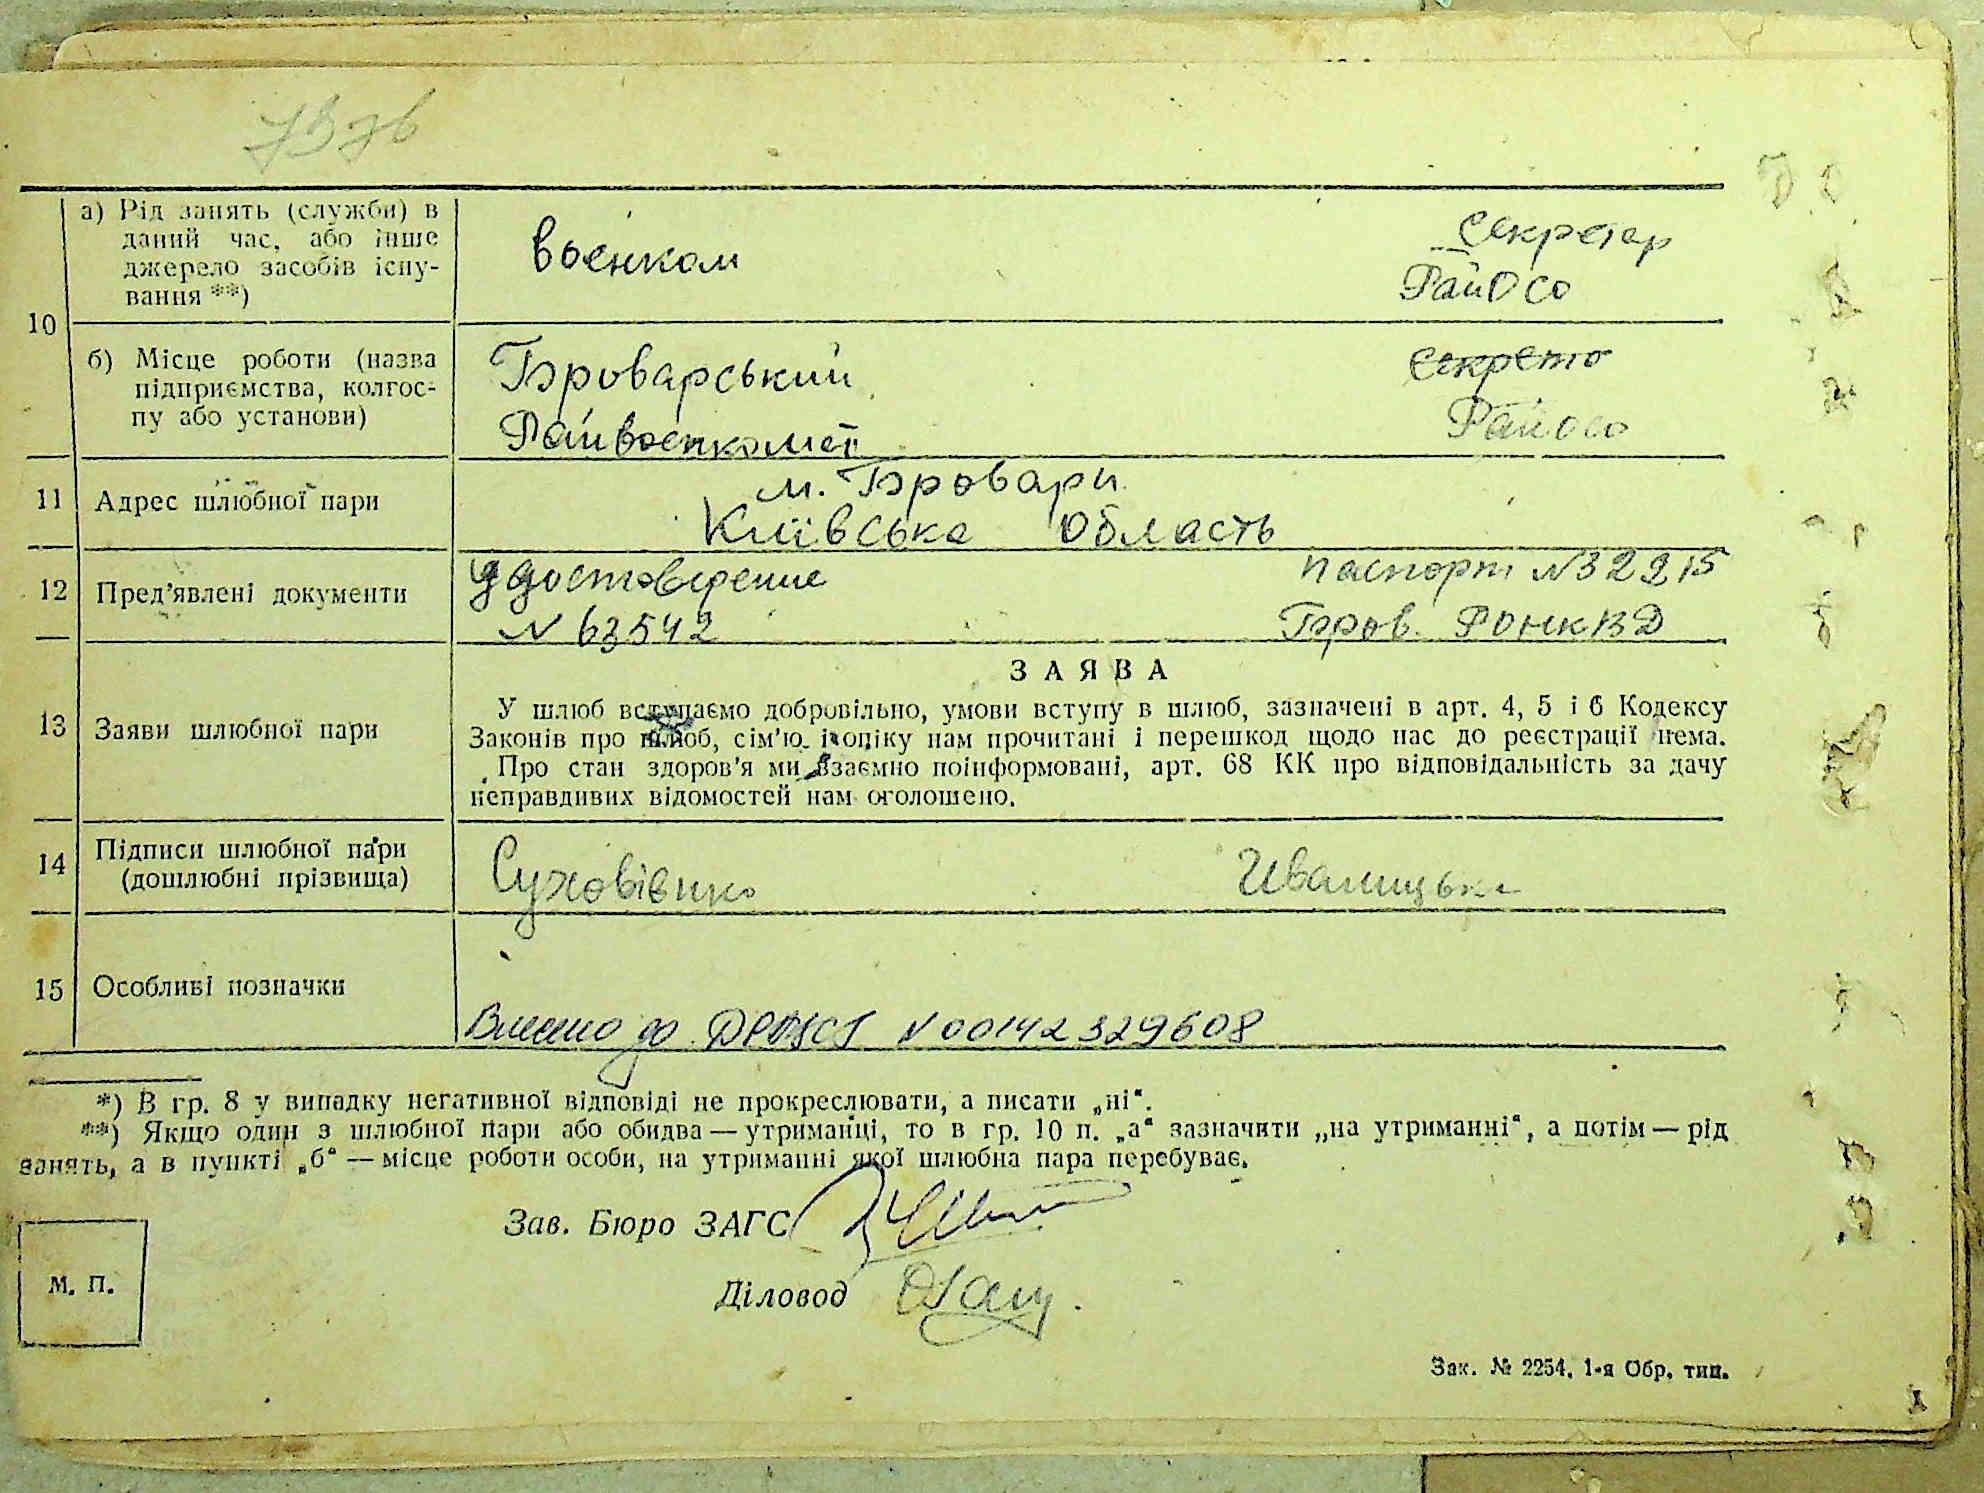 10
а) Рід занять (служби) в
даний час, або інше
джерело засобів існу-
вання **)
воєнком
Секретар
РайОсо
б) Місце роботи (назва
підприємства, колгос-
пу або установи)
Броварський
Райвоєнкомат
секрето
Райосо
11
Адрес шлюбної пари
м. Бровари
Київська область
12
Пред'явлені документи
Удостоверение
N 63542
паспорт N 32215
Бров. РОНКВД
13
Заяви шлюбної пари
ЗАЯВА
У шлюб вступаємо добровільно, умови вступу в шлюб, зазначені в арт. 4, 5 і 6 Кодексу
Законів про шлюб, сім'ю і опіку нам прочитані і перешкод щодо нас до реєстрації нема.
Про стан здоров'я ми взаємно поінформовані, арт. 68 КК про відповідальність за дачу
неправдивих відомостей нам оголошено.
14
Підписи шлюбної пари
(дошлюбні прізвища)
Иваницька
15
Особливі позначки
Внесено до ДРАЦСГ N 00142329608
*) В гр. 8 у випадку негативної відповіді не прокреслювати, а писати „ні“.
**) Якщо один з шлюбної пари або обидва — утриманці, то в гр. 10 п. „а“ зазначити „на утриманні“, а потім — рід
занять, а в пункті „б“ — місце роботи особи, на утриманні якої шлюбна пара перебуває.
Зав. Бюро ЗАГС
Діловод
М. П.
Зак. № 2254. 1-я Обр. тип.